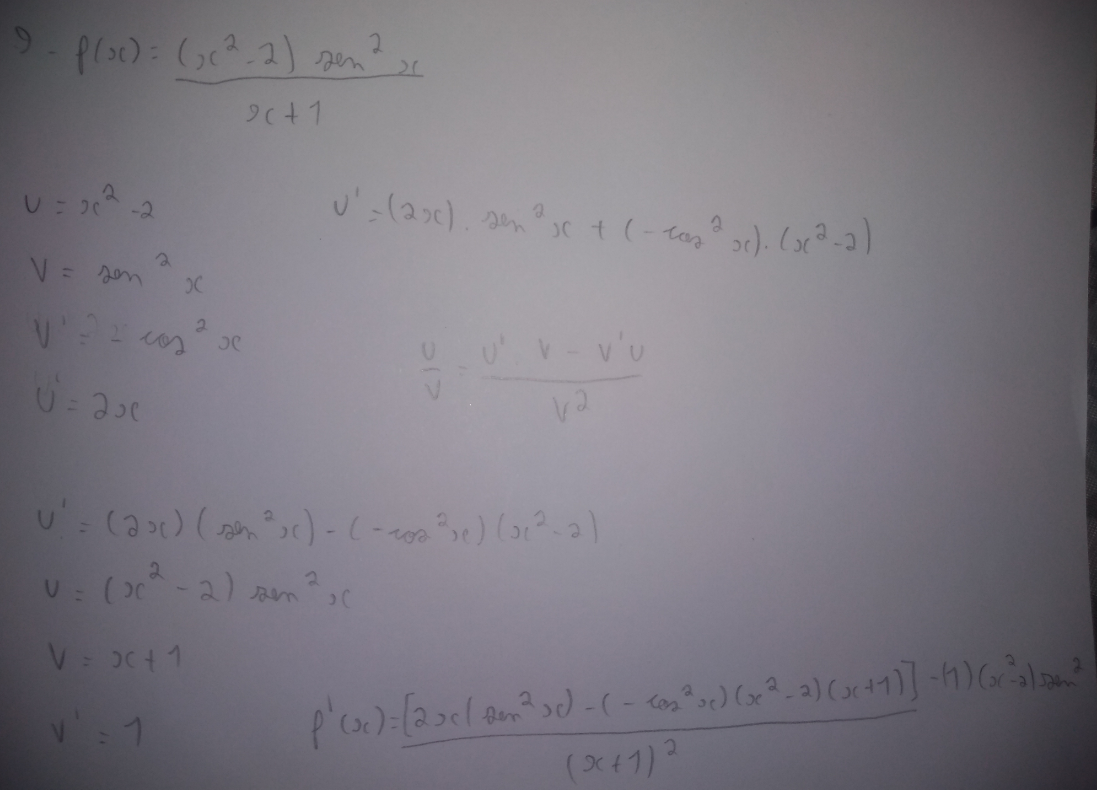 9 - f(x) = (x² - 2) sen² x
x + 1
U = x² - 2
U' = (2x) . sen² x + (- cos² x) . (x² - 2)
V = sen² x
V' = - cos² x
U/V = U' . V - V'U / V²
U' = 2x
U' = (2x) (sen² x) - (- cos² x) (x² - 2)
U = (x² - 2) sen² x
V = x + 1
V' = 1
f'(x) = [2x (sen² x) - (- cos² x) (x² - 2) (x + 1)] - (1) (x² - 2) sen²
(x + 1)²